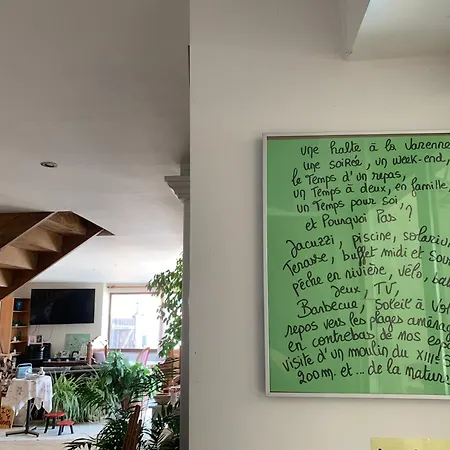 une halte à la Varenne
une soirée, un week-end,
le Temps d'un repas,
un Temps à deux, en famille,
un Temps pour soi,
et Pourquoi Pas ?
Jacuzzi, piscine, solarium
Terasse, buffet midi et soir
pêche en rivière, vélo
Jeux, TV,
Barbecue, soleil à
repos vers les plages aménag
en contrebas de nos
visite d'un moulin du XIIIe
200m. et... de la nature